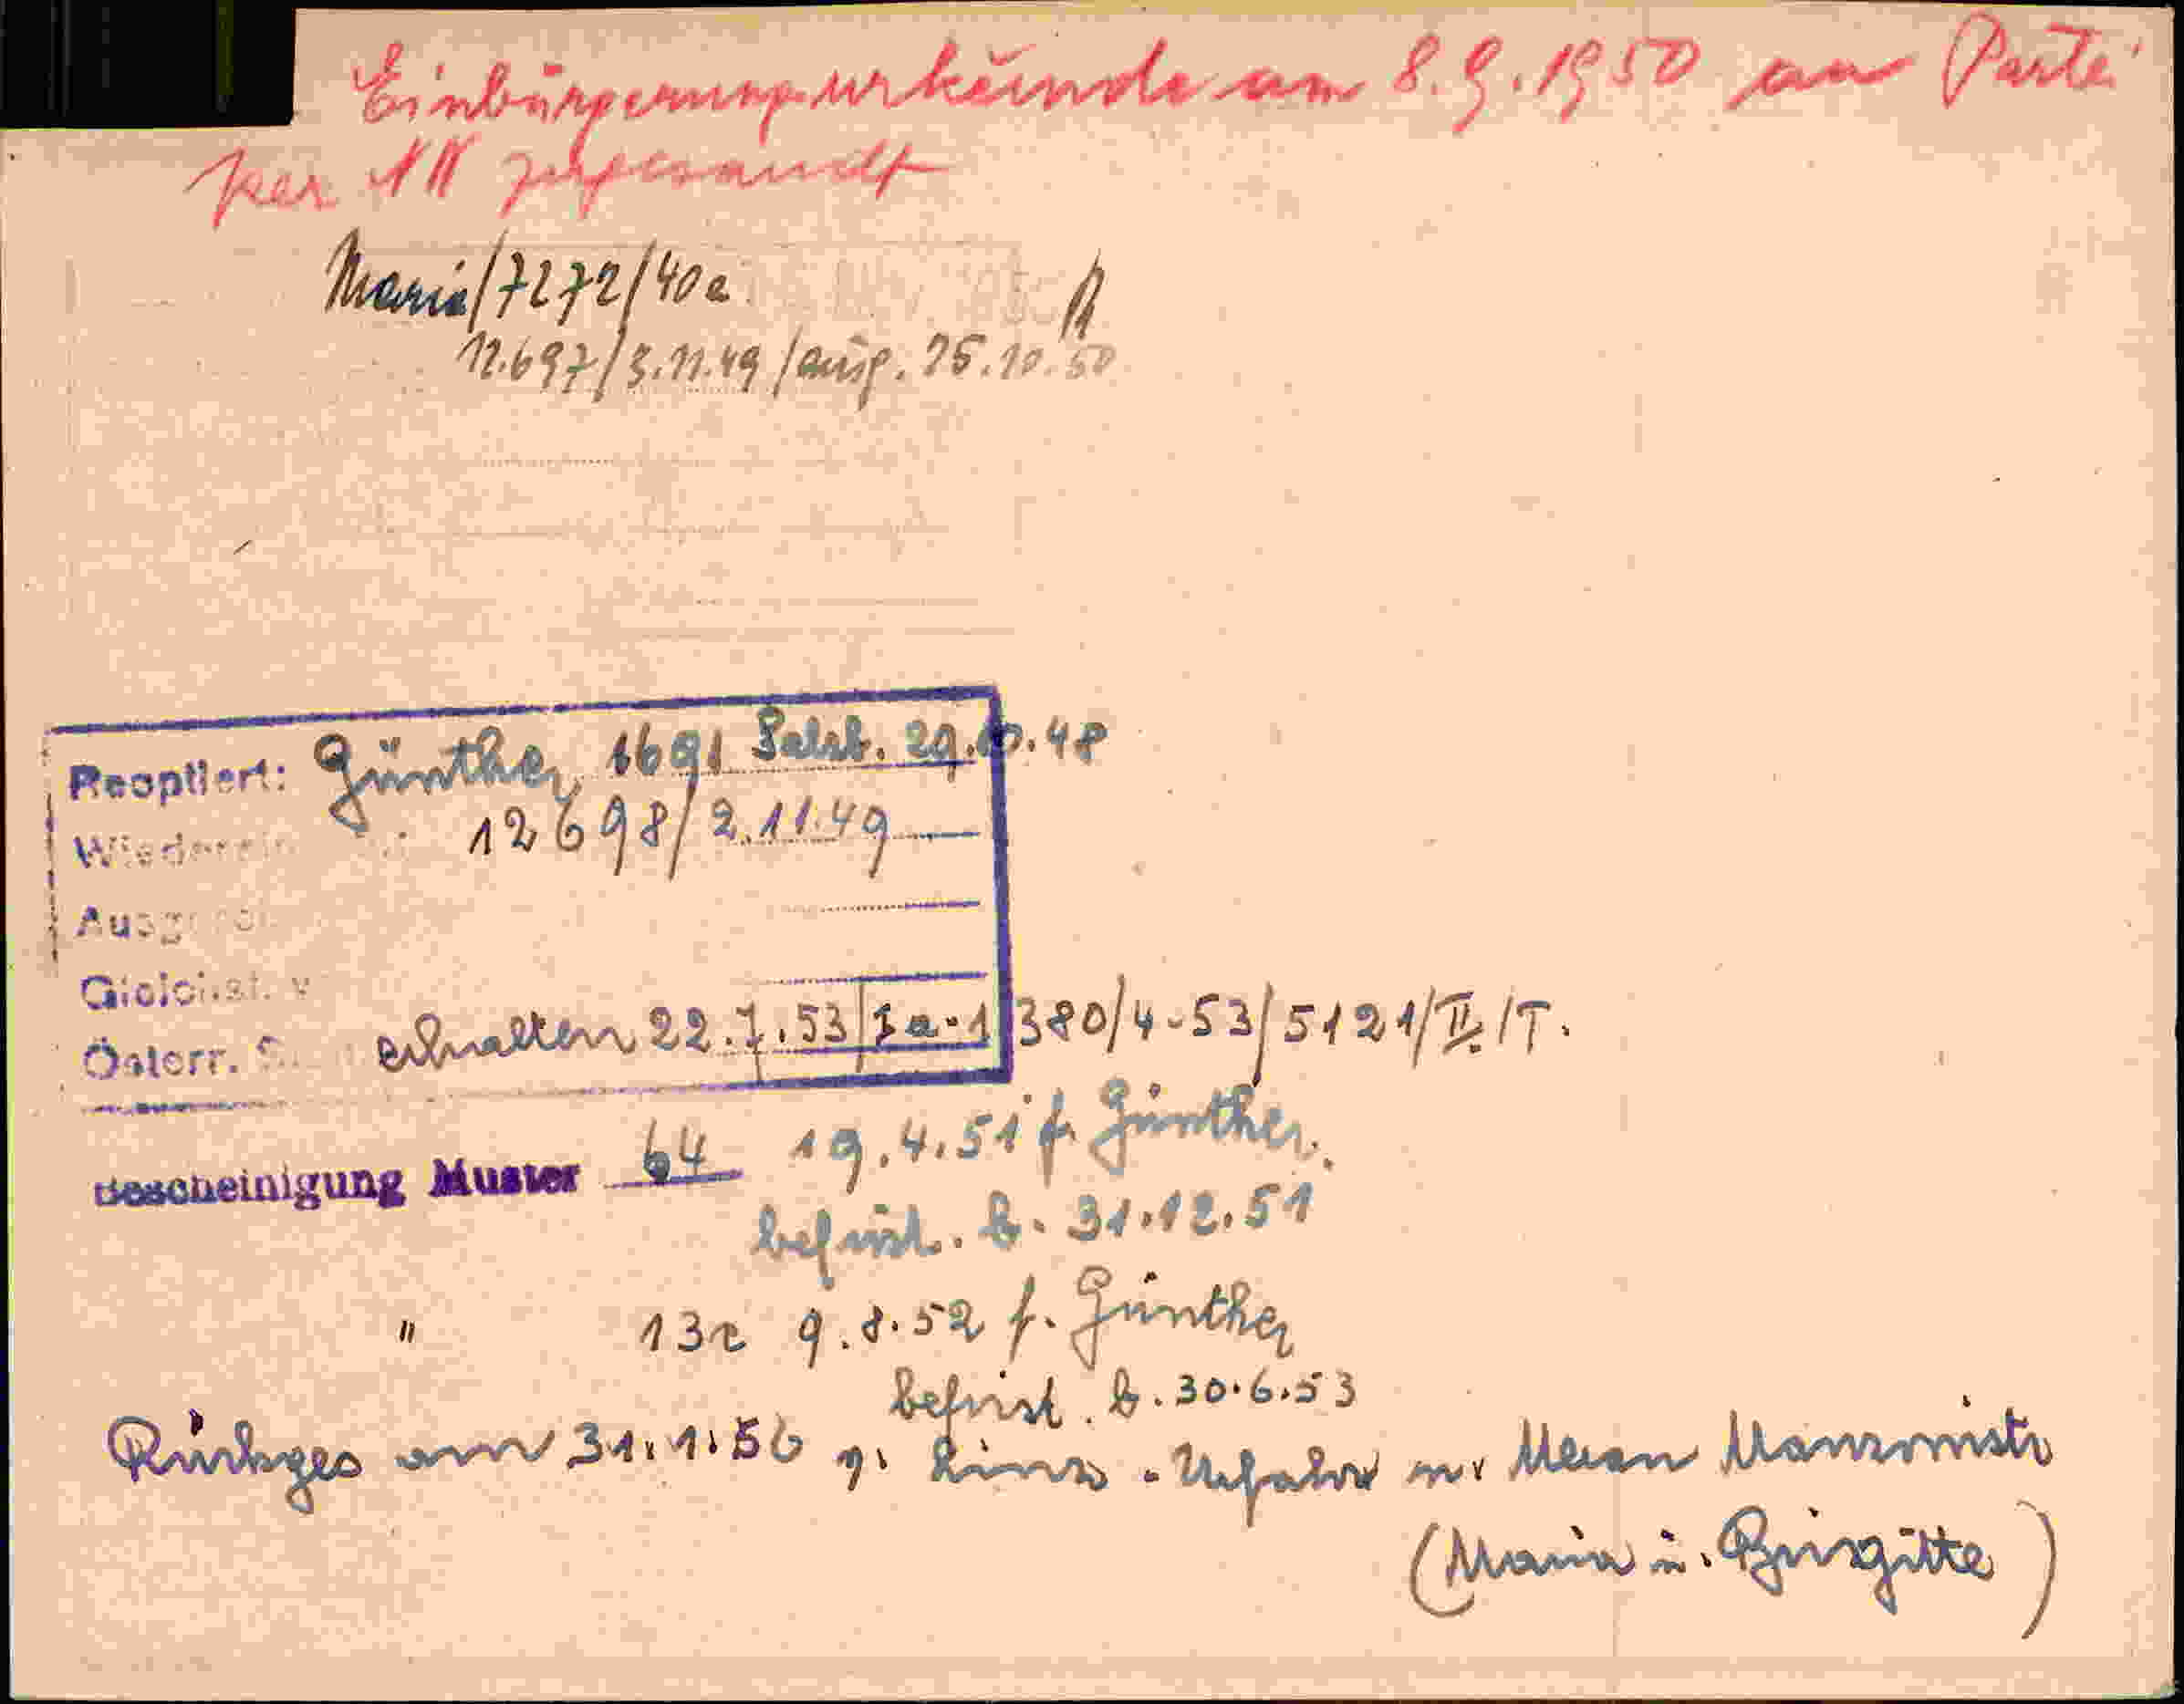 Einbürgerungsurkunde am 8.9.1950 an Partei
per NN zugesandt
Maria/7272/40a
12.697/3.11.49/ausg. 25.10.50
Reoptiert: Günther, 1691 Salzb. 29.10.48
12698/2.11.49
Österr. erhalten 22.7.53/Ia-1380/4-53/5121/II/T.
Bescheinigung Muster 64 19.4.51 f. Günther.
befrist. b. 31.12.51
" 13c 9.8.52 f. Günther
befrist. b. 30.6.53
Rückges am 31.1.56 v. Linz - Urfahr n. Meran Manzonistr
(Maria u. Birgitte)